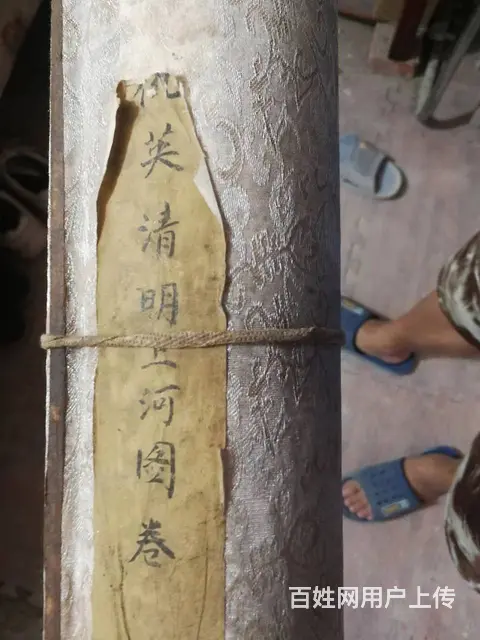 仇英清明上河图卷
百姓网用户上传